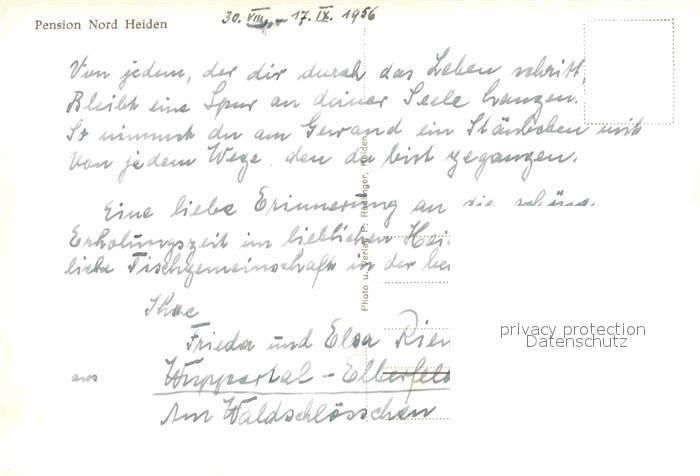 Pension Nord Heiden
30. VIII. - 17. IX. 1956
Von jedem, der dir durch das Leben schritt,
Bleibt eine Spur an deiner Seele hangen.
So nimmst du am Gewand ein Stäubchen mit
Von jedem Wege, den du bist gegangen.
Eine liebe Erinnerung an die schöne
Erholungszeit im lieblichen Hei
liebe Tischgemeinschaft in der be
Ihre
Frieda und Elsa Rien
aus Wuppertal - Elberfeld
Am Waldschlösschen
Photo u. Verlag P. Heiden
privacy protection
Datenschutz